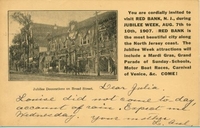 You are cordially invited to
visit RED BANK, N. J., during
JUBILEE WEEK, AUG. 7th to
10th, 1907. RED BANK is
the most beautiful city along
the North Jersey coast. The
Jubilee Week attractions will
include a Mardi Gras, Grand
Parade of Sunday-Schools,
Motor Boat Races, Carnival
of Venice, &c. COME!
Jubilee Decorations on Broad Street.
Dear Julia.
did not come to-day
account of rain. Expect me
Wednesday. your mother